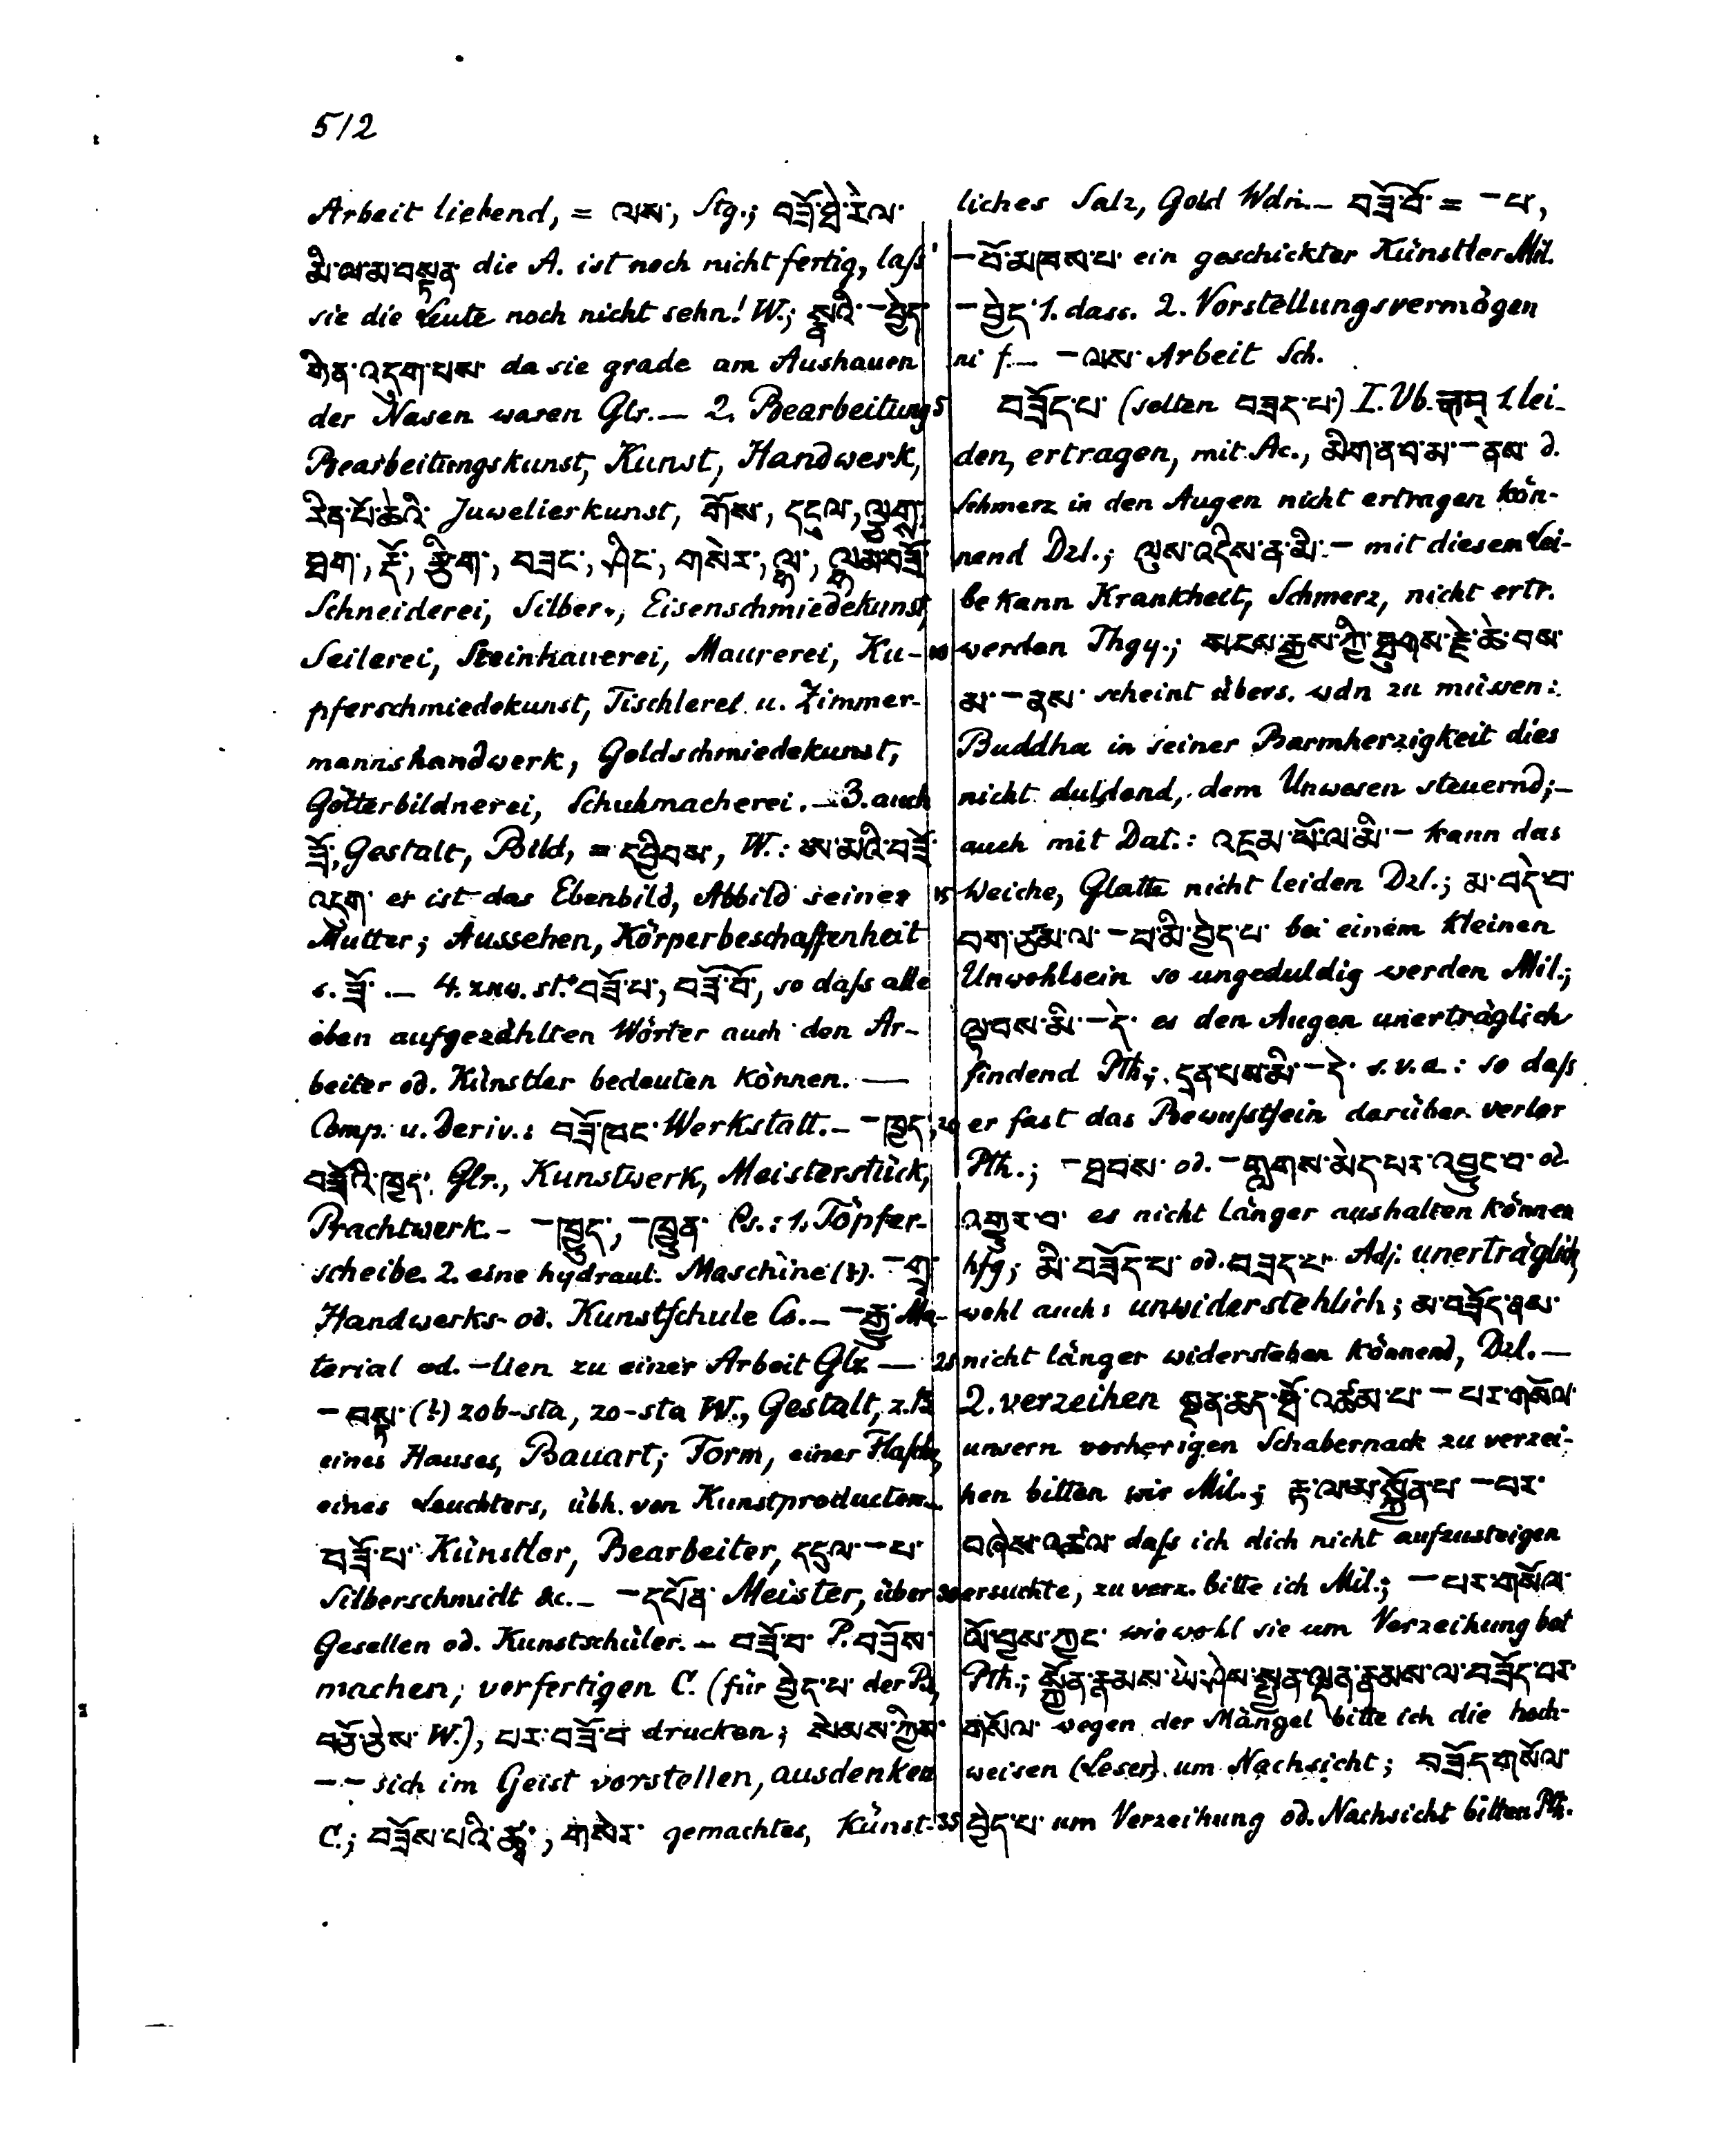 512
Arbeit liebend, = ལས་, Stg.; བཟོ་ཐེ་རེ་ལ་
མི་ལ་མ་བསྟན་ die A. ist noch nicht fertig, laß'
sie die Leute noch nicht sehn! W.; སྣའི་ – བྱེད་
གིན་འདུག་པས་ da sie grade am Aushauen
der Nasen waren Glr. — 2. Bearbeitung
Bearbeitungskunst, Kunst, Handwerk,
རིན་པོ་ཆེའི་ Juwelierkunst, གོས་, དངུལ་, ལྕགས་,
ཐག་, རྡོ་, རྩིག་, བཟང་, ཤིང་, གསེར་, ལྷ་, ལྷམ་བཟོ་
Schneiderei, Silber-, Eisenschmiedekunst,
Seilerei, Steinhauerei, Maurerei, Ku-
pferschmiedekunst, Tischlerei u. Zimmer-
mannshandwerk, Goldschmiedekunst,
Götterbildnerei, Schuhmacherei. — 3. auch
ཟོ་, Gestalt, Bild, = དབྱིབས་, W.: ཨ་མའི་བཟོ་
འདུག་ er ist das Ebenbild, Abbild seiner
Mutter; Aussehen, Körperbeschaffenheit
s. ཟོ་. — 4. zuw. st. བཟོ་པ་, བཟོ་བོ་, so daß alle
oben aufgezählten Wörter auch den Ar-
beiter od. Künstler bedeuten können. —
Comp. u. Deriv.: བཟོ་ཁང་ Werkstatt. — – ཁྱད་,
བཟོའི་ཁྱད་ Glr., Kunstwerk, Meisterstück,
Prachtwerk. – – ཁྱུད་, – ཁྱུན་ Cs.: 1. Töpfer-
scheibe. 2. eine hydraul. Maschine (?). – གྲྭ་
Handwerks- od. Kunstschule Cs. – – རྒྱུ་ Ma-
terial od. -lien zu einer Arbeit Glr. —
– བསྟ་ (?) zob-sta, zo-sta W., Gestalt, z.B.
eines Hauses, Bauart; Form, einer Flasche,
eines Leuchters, übh. von Kunstproducten. –
བཟོ་པ་ Künstler, Bearbeiter, དངུལ་ – པ་
Silberschmidt &c. – – དཔོན་ Meister, über
Gesellen od. Kunstschüler. – བཟོ་བ་ P. བཟོས་
machen, verfertigen C. (für བྱེད་པ་ der B.,
བཅོ་ཅེས་ W.), པར་བཟོ་བ་ drucken; སེམས་ཀྱིས་
– – sich im Geist vorstellen, ausdenken
C.; བཟོས་པའི་ཚྭ་, གསེར་ gemachtes, künst-
liches Salz, Gold Wdn. – བཟོ་བོ་ = – པ་,
– བོ་མཁས་པ་ ein geschickter Künstler Mil.
– བྱེད་ 1. dass. 2. Vorstellungsvermögen
ni f. – – ལས་ Arbeit Sch.
5 བཟོད་པ་ (selten བཟད་པ་) I. Vb. 1. lei-
den, ertragen, mit Ac., མིག་ན་བ་མ་ – ནས་ d.
Schmerz in den Augen nicht ertragen kön-
nend Dzl.; ལུས་འདིས་ན་མི་ – mit diesem Lei-
be kann Krankheit, Schmerz, nicht ertr.
10 werden Thgy.; སངས་རྒྱས་ཀྱི་ཐུགས་རྗེ་ཆེ་བས་
མ་ – ནས་ scheint übers. wdn zu müssen:
Buddha in seiner Barmherzigkeit dies
nicht duldend, dem Unwesen steuernd; –
auch mit Dat.: འཇམ་པོ་ལ་མི་ – kann das
15 Weiche, Glatte nicht leiden Dzl.; མ་བདེ་བ་
བག་ཙམ་ལ་ – བ་མི་བྱེད་པ་ bei einem kleinen
Unwohlsein so ungeduldig werden Mil.;
ལྟ་བས་མི་ – དེ་ es den Augen unerträglich
findend Pth.; དྲན་པས་མི་ – དེ་ s.v.a.: so daß
20 er fast das Bewußtsein darüber verlor
Pth.; – ཐབས་ od. – གླགས་མེད་པར་འབྱུང་བ་ od.
འགྱུར་བ་ es nicht länger aushalten können
hfg; མི་བཟོད་པ་ od. བཟད་པ་ Adj. unerträglich,
wohl auch: unwiderstehlich; མ་བཟོད་ནས་
25 nicht länger widerstehen könnend, Dzl. —
2. verzeihen སྔན་ཆད་ཀྱི་འཚམ་པ་ – པར་གསོལ་
unsern vorherigen Schabernack zu verzei-
hen bitten wir Mil.; རྟ་ལ་མ་སྐྱོན་པ་ – བར་
བཞེས་འཚལ་ daß ich dich nicht aufzusteigen
30 ersuchte, zu verz. bitte ich Mil.; – པར་གསོལ་
ལོ་བྱས་ཀྱང་ wiewohl sie um Verzeihung bat
Pth.; སྐྱོན་རྣམས་ཡེ་ཤེས་སྤྱན་ལྡན་རྣམས་ལ་བཟོད་པར་
གསོལ་ wegen der Mängel bitte ich die hoch-
weisen (Leser) um Nachsicht; བཟོད་གསོལ་
35 བྱེད་པ་ um Verzeihung od. Nachsicht bitten Pth.